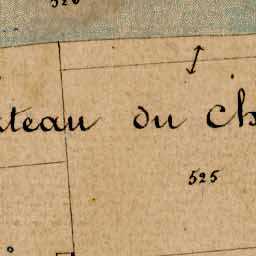 520
teau du Ch
525